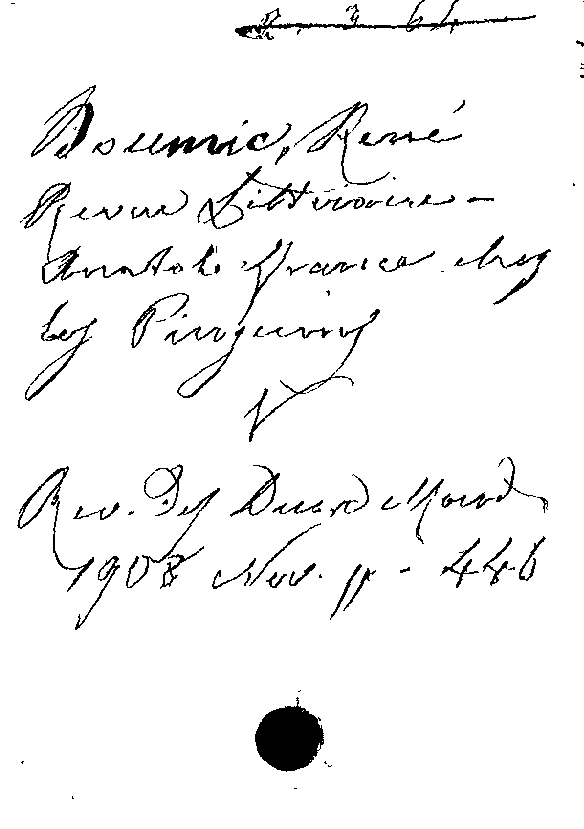 Doumic, René
Revue Littéraire -
Anatole France chez
les Pingouins
Rev. Des Deux Mond
1908 Nov. pp - 446